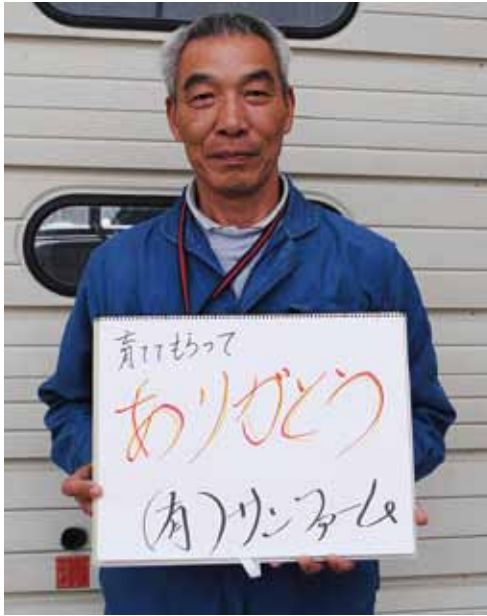 育ててもらって
ありがとう
(有)フリンファーム